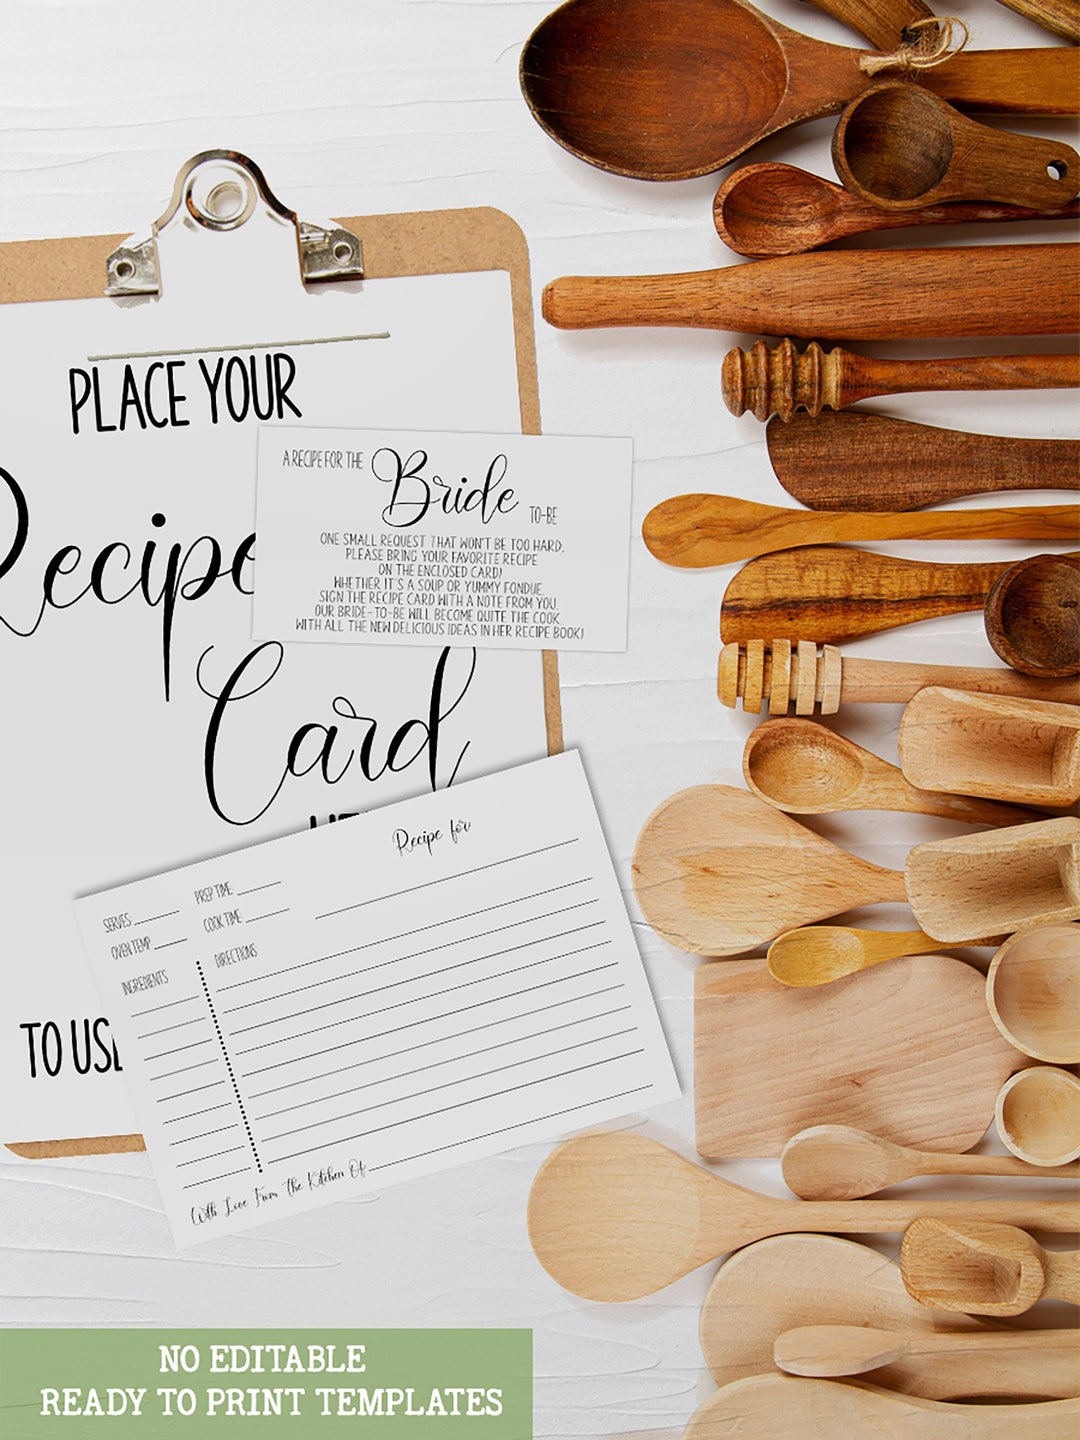 PLACE YOUR
Recipe
Card
TO USE
A RECIPE FOR THE Bride TO-BE
ONE SMALL REQUEST THAT WON'T BE TOO HARD,
PLEASE BRING YOUR FAVORITE RECIPE
ON THE ENCLOSED CARD!
WHETHER IT'S A SOUP OR YUMMY FONDUE.
SIGN THE RECIPE CARD WITH A NOTE FROM YOU.
OUR BRIDE-TO-BE WILL BECOME QUITE THE COOK,
WITH ALL THE NEW DELICIOUS IDEAS IN HER RECIPE BOOK!
Recipe for
SERVES
PREP TIME
OVEN TEMP
COOK TIME
INGREDIENTS
DIRECTIONS
With Love From The Kitchen Of
NO EDITABLE
READY TO PRINT TEMPLATES